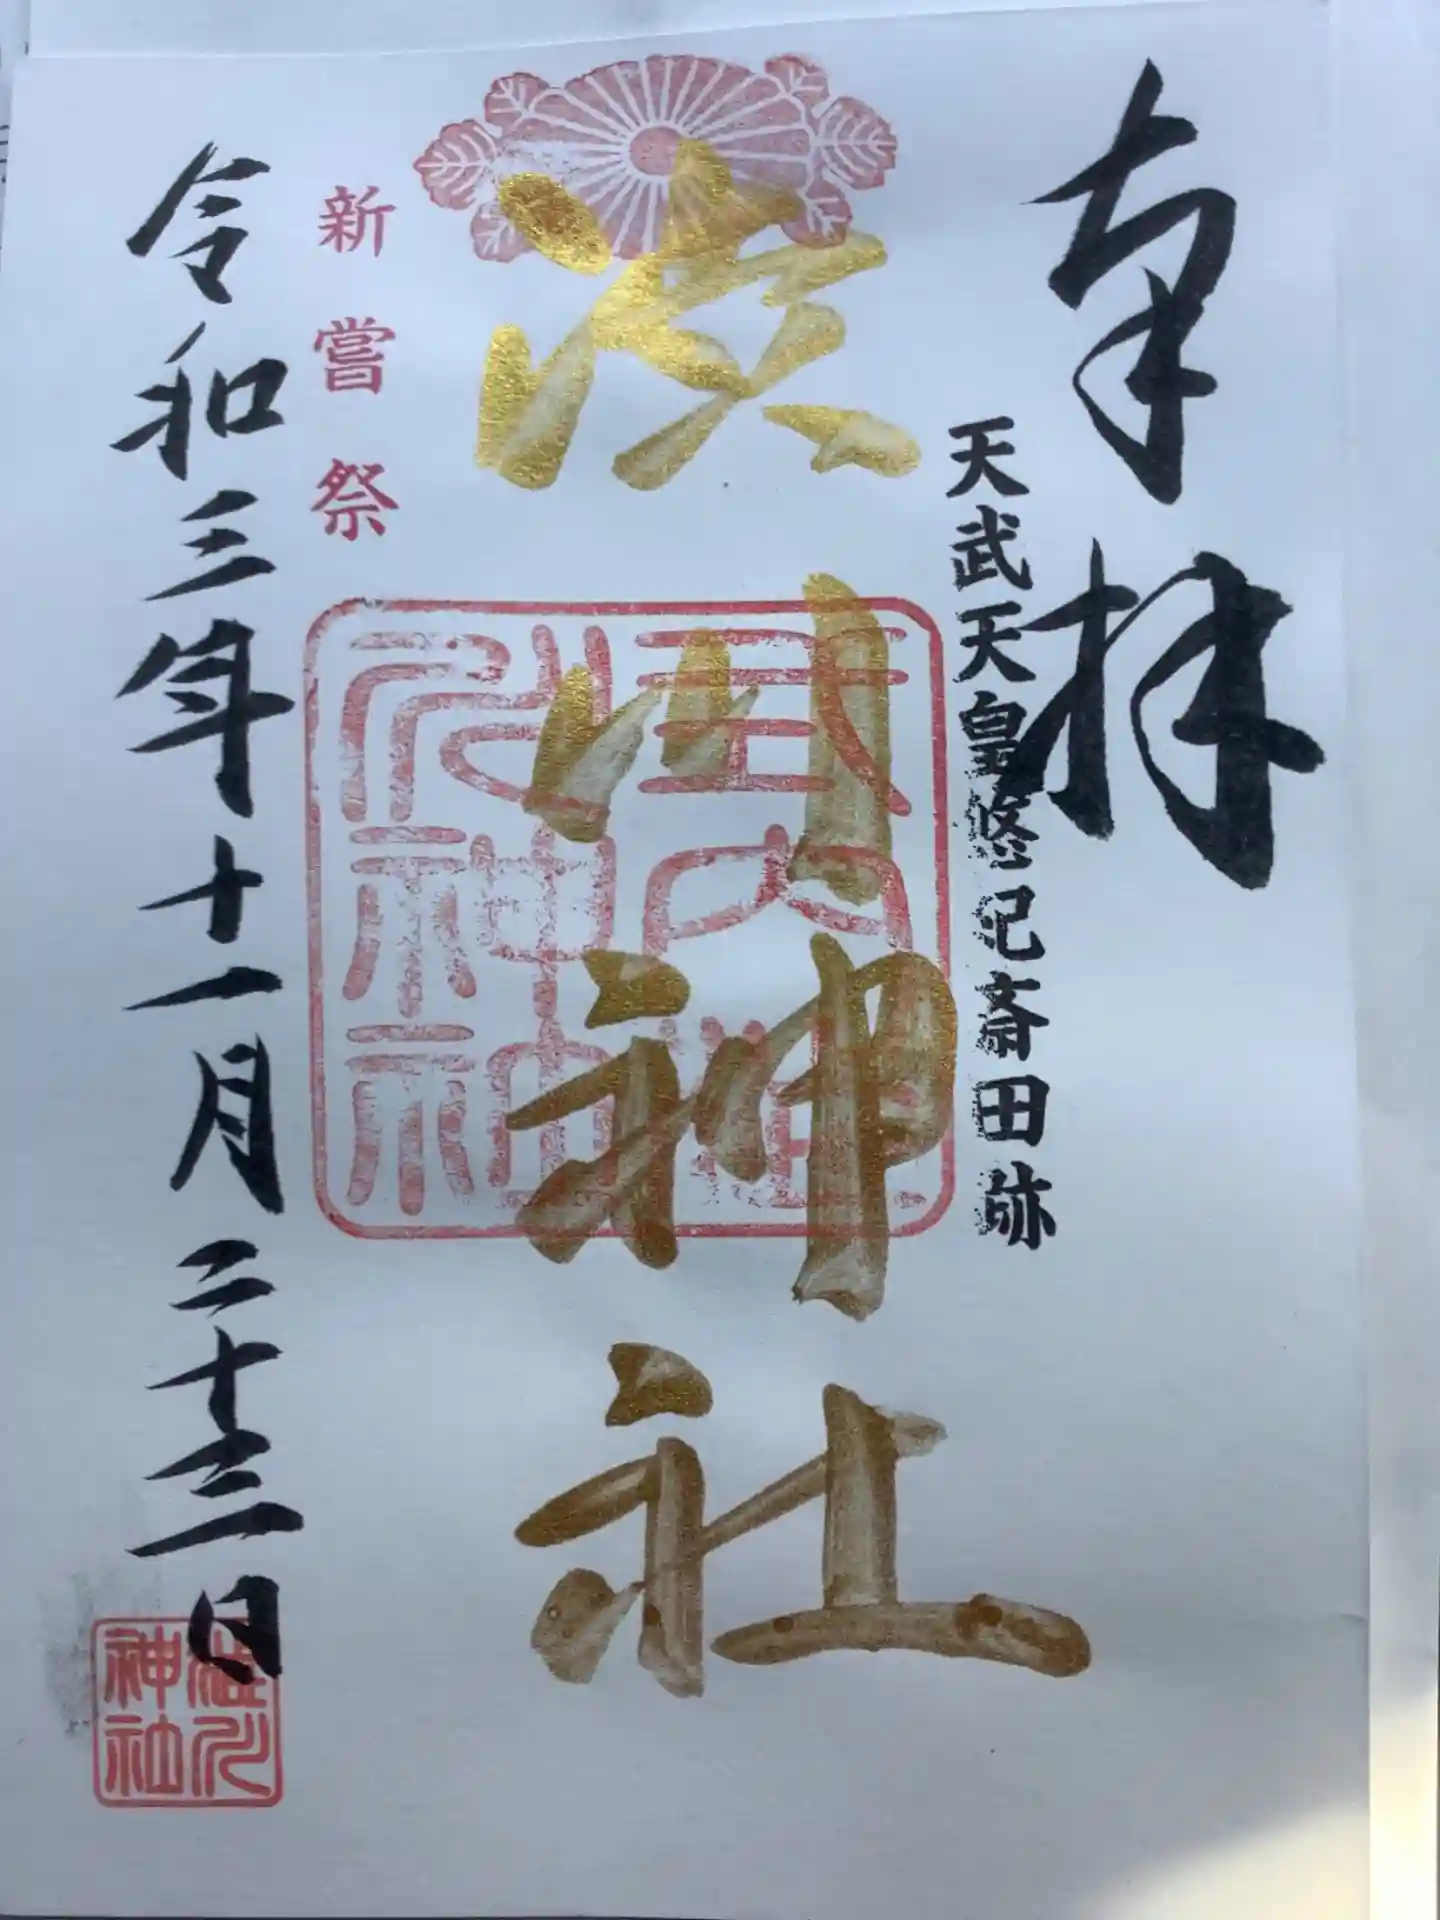 奉拝
天武天皇悠紀斎田跡
渋川神社
新嘗祭
令和三年十一月二十三日
澁川神社